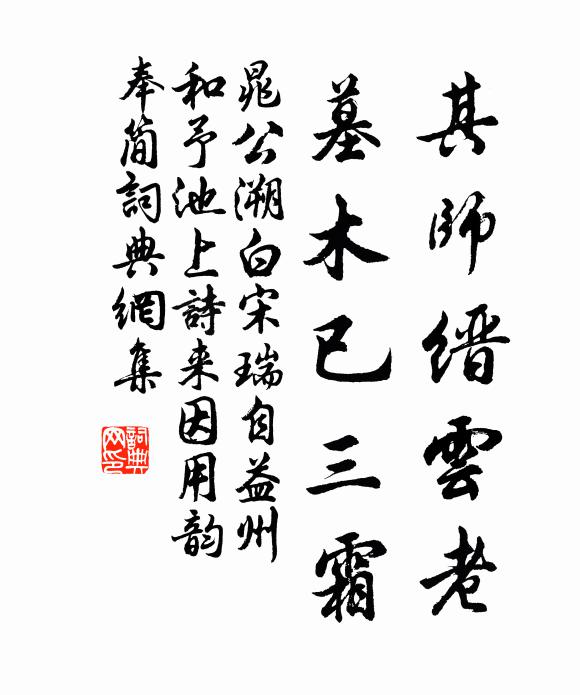 其師縉雲老
墓木已三霜
晁公溯白宋瑞自益州
和予池上詩来因用韵
奉简詞典網集
詞典
网印